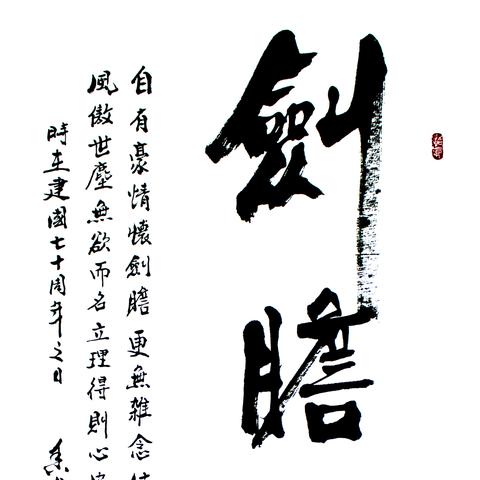 劍膽
自有豪情懷劍膽更無雜念
風傲世塵無欲而名立理得則心
時在建國七十周年之日